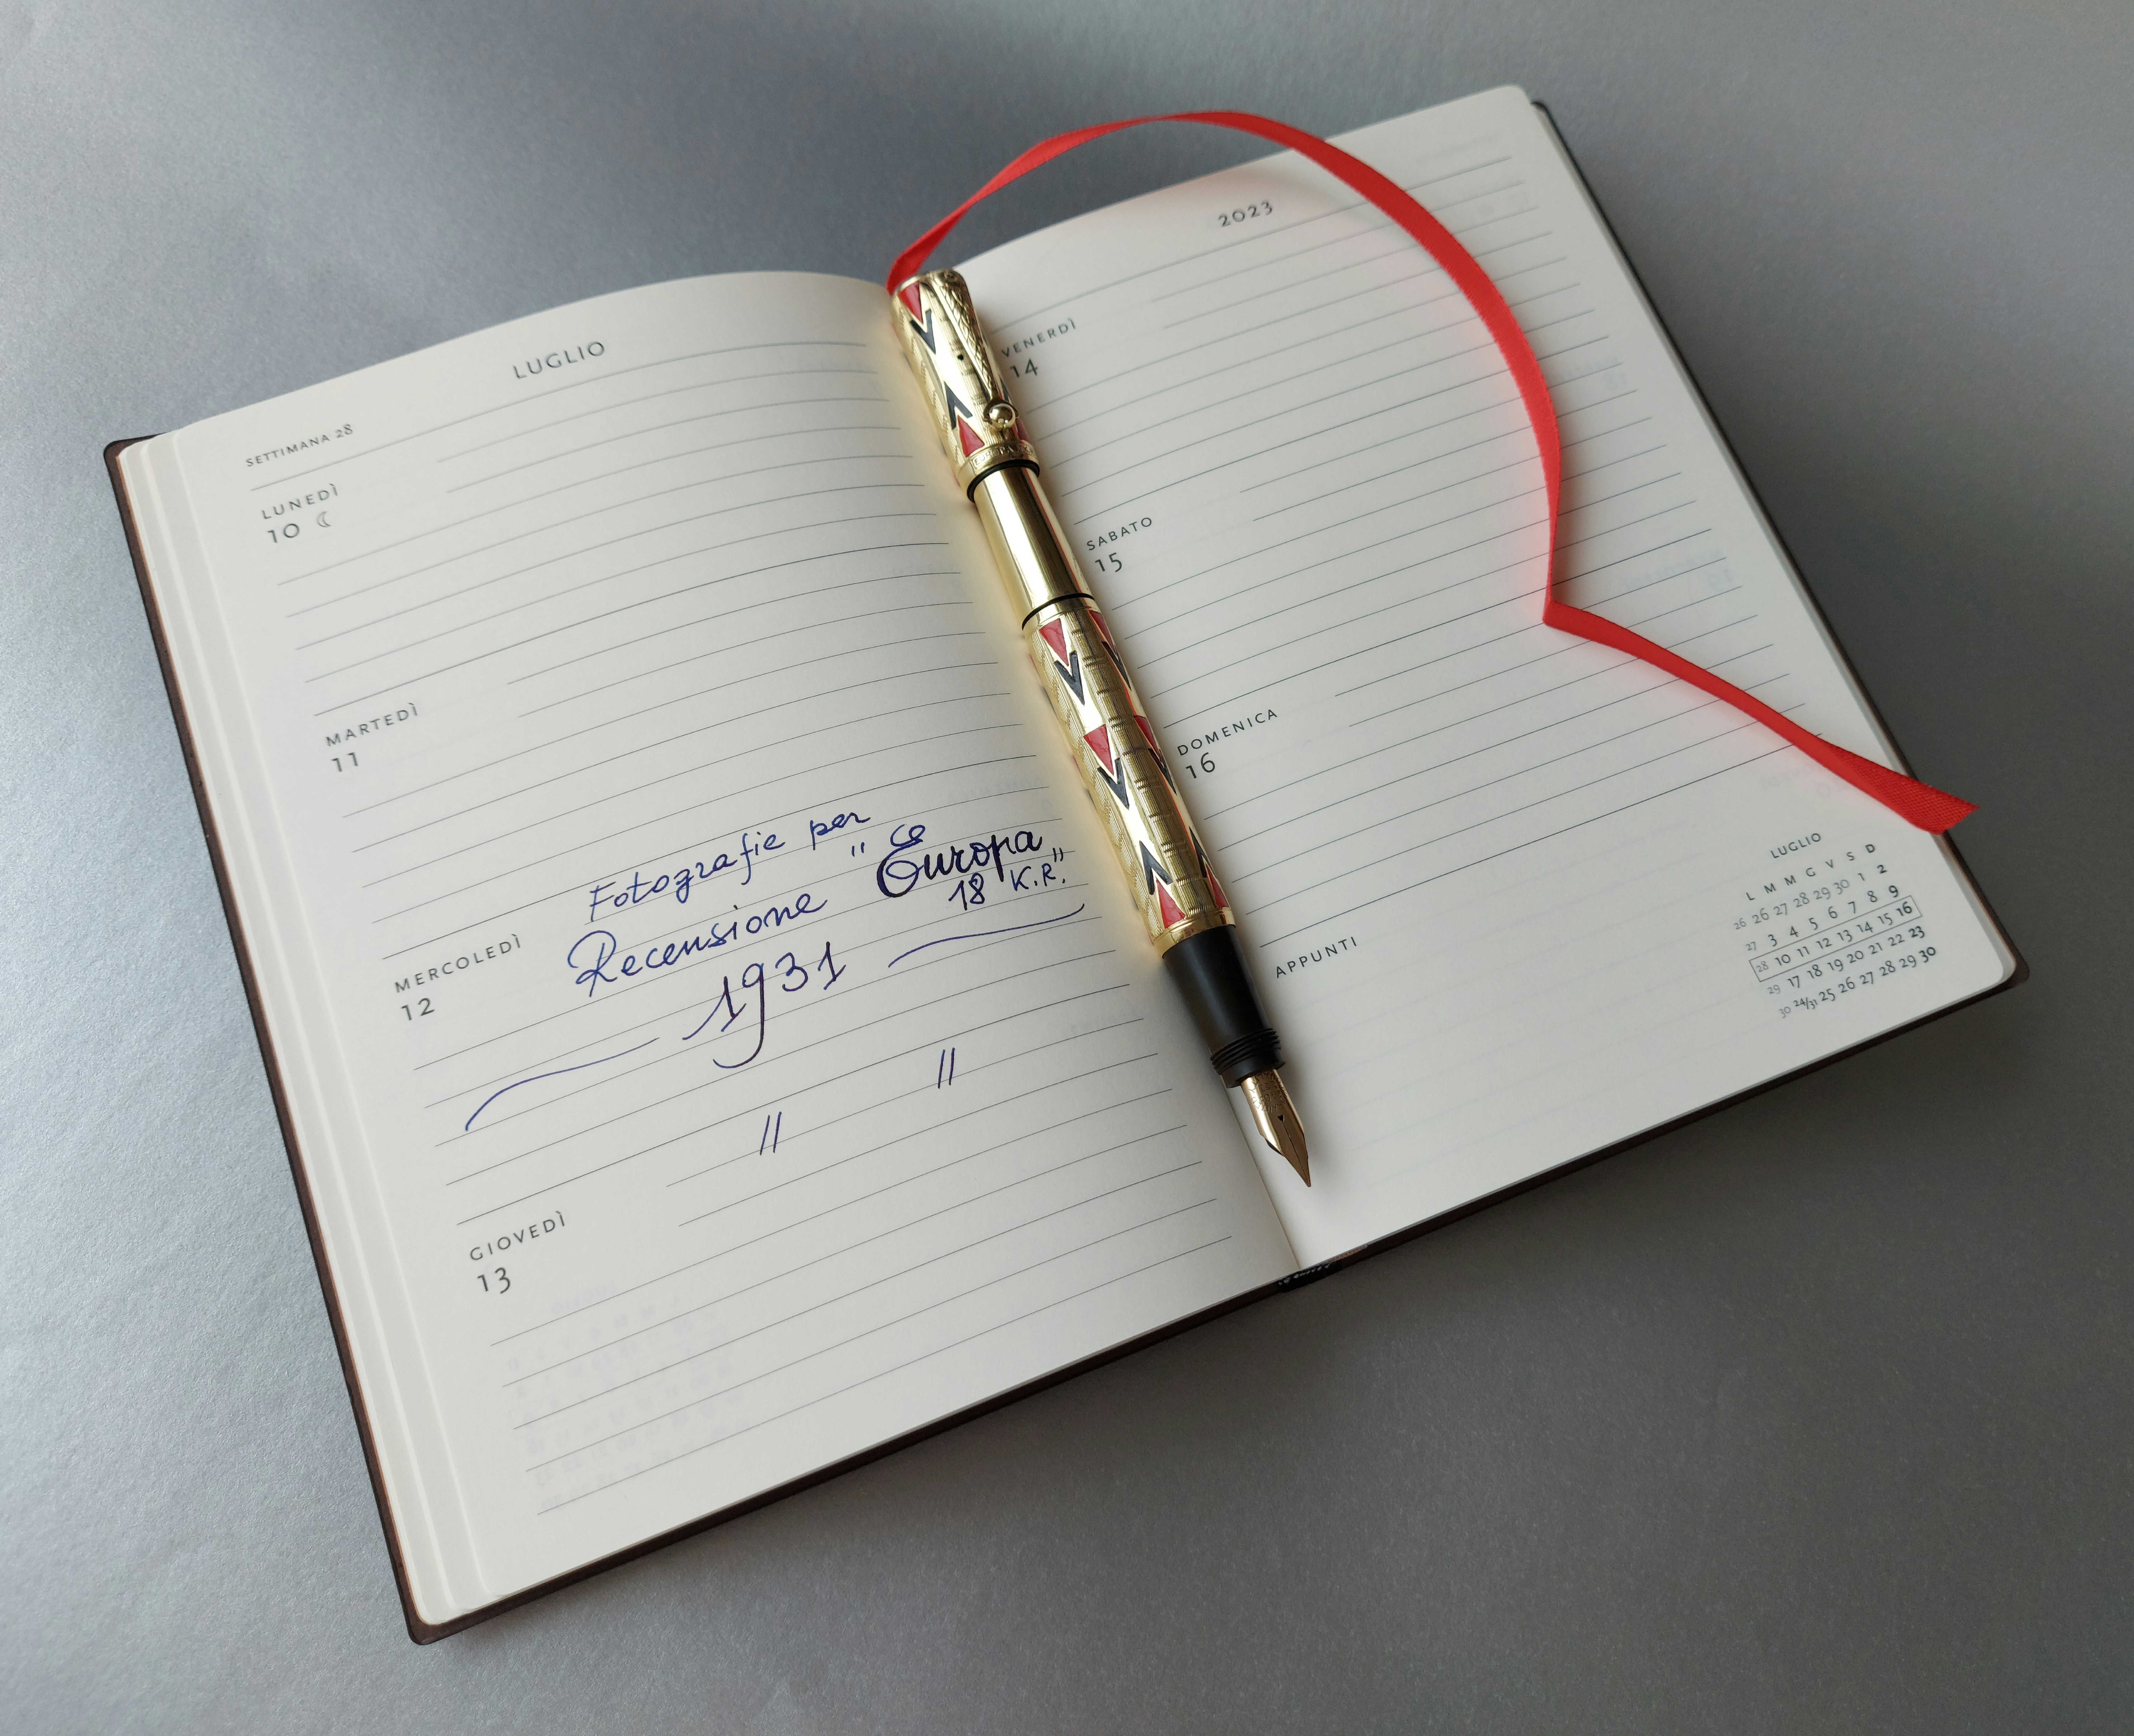 LUGLIO
SETTIMANA 28
LUNEDÌ
10
MARTEDÌ
11
MERCOLEDÌ
12
Fotografie per
Recensione "Europa
18 K.R."
1931
" "
GIOVEDÌ
13
2023
VENERDÌ
14
SABATO
15
DOMENICA
16
APPUNTI
LUGLIO
L M M G V S D
26 26 27 28 29 30 1 2
27 3 4 5 6 7 8 9
28 10 11 12 13 14 15 16
29 17 18 19 20 21 22 23
30 24/31 25 26 27 28 29 30